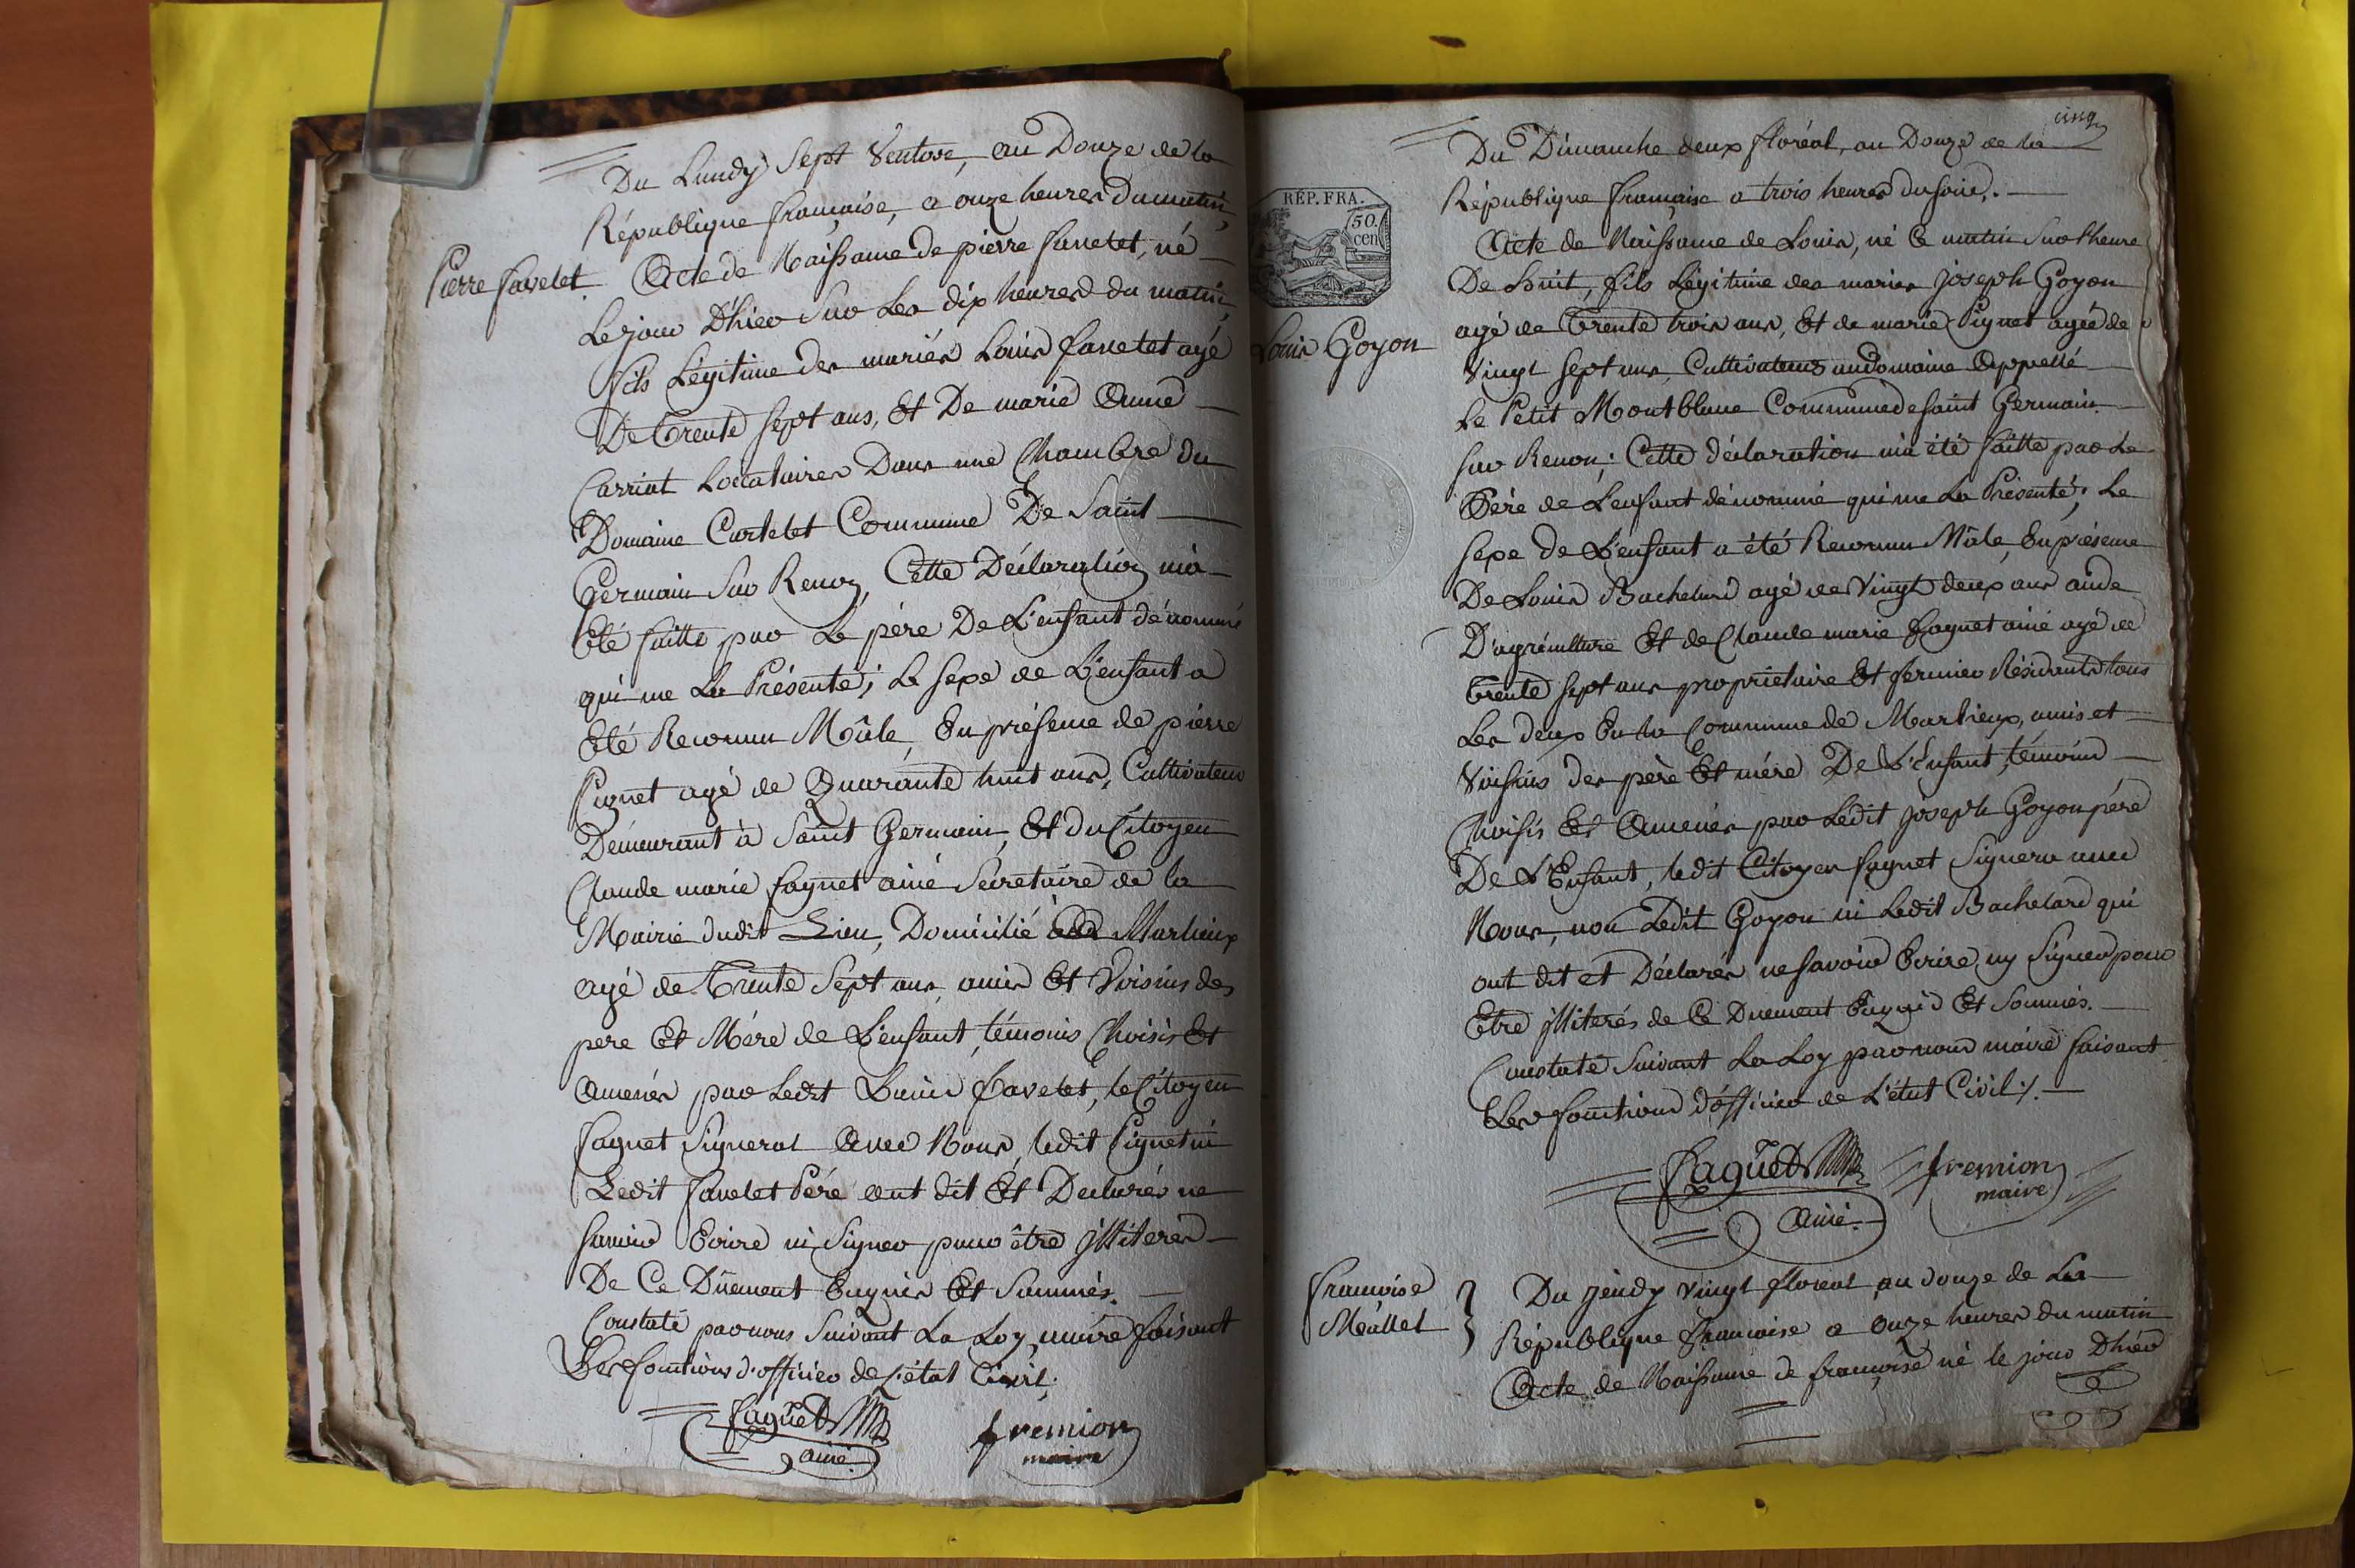 Du Lundy Sept Ventose, an Douze de la
République française, a onze heures du matin,
Pierre favelet
Acte de Naissance de pierre favelet, né
Le jour D'hier Sur Les dix heures du matin,
fils Légitime des mariés Louis favelet agé
De Trente sept ans, Et De marie Anne
Carriat Locataires Dans une Chambre du
Domaine Curtelet Commune De Saint
Germain Sur Renon, Cette Déclaration m'a
Eté faitte par Le père De L'enfant dénommé
qui me La Présenté; Le sexe de L'enfant a
Eté Reconnu Mâle, En présence de pierre
Pignet agé de Quarante huit ans, Cultivateur
Demeurant à Saint Germain, Et du Citoyen
Claude marie faguet ainé Sécretaire de la
Mairie dudit Lieu, Domicilié Marlieux
agé de Trente Sept ans, amis Et Voisins des
pere Et Mére de L'enfant, témoins Choisis Et
Amenés par Ledit Louis favelet, le Citoyen
faguet Signerat Avec Nous, ledit Pignet ni
Ledit favelet Pére ont dit Et Declarés ne
savoir Ecrire ni Signer pour être illiterés
De Ce Dûement Enquis Et Sommés.
Constaté par nous Suivant La Loy, maire faisant
Les fonctions d'officier de L'état Civil;
faguet
ainé
fremion
maire
cinq
Du Dimanche deux floréal, an Douze de la
République française a trois heures du soir.
RÉP. FRA.
50.
cen
Louis Goyon
Acte de Naissance de Louis, né Ce matin Sur l'heure
De huit, fils Légitime des mariés Joseph Goyon
agé de Trente trois ans, Et de marie Pignet agée de
Vingt sept ans, Cultivateurs au domaine Appellé
Le Petit Montblanc Commune de saint Germain
sur Renon; Cette déclaration m'a été faitte par Le
Pére de L'enfant dénommé qui me La Présenté; Le
sexe de L'enfant a été Reconnu Mâle, En présence
De Louis Bachelard agé de Vingt deux ans aide
D'agriculture Et de Claude marie faguet ainé agé de
Trente sept ans propriétaire Et fermier Résidants tous
Les deux En la Commune de Marlieux, amis et
Voisins des père Et mére De L'Enfant, témoins
Choisis Et Amenés par Ledit Joseph Goyon pére
De L'Enfant, ledit Citoyen faguet Signera avec
Nous, non Ledit Goyon ni Ledit Bachelard qui
ont dit et Déclarés ne savoir Ecrire ny Signer pour
Etre illiterés de Ce Duement Enquis Et Sommés.
Constaté Suivant La Loy par nous maire faisant
Les fonctions d'officier de L'état Civil./.
faguet
Ainé
fremion
maire
francoise
Mallet
Du jeudy vingt floreal an douze de La
République francaise a onze heures du matin
Acte de Naissance de françoise né le jour D'hier